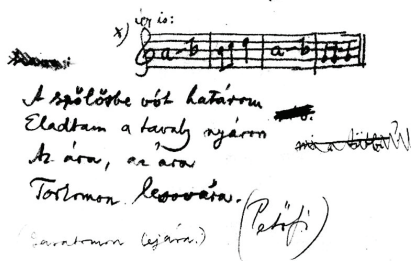 x) így is:
a - b a - b
A szőlősbe vót határom
Eladtam a tavaly nyáron
Az ára, az ára
Torkomon lesovára.
(Petőfi)
lejára.)